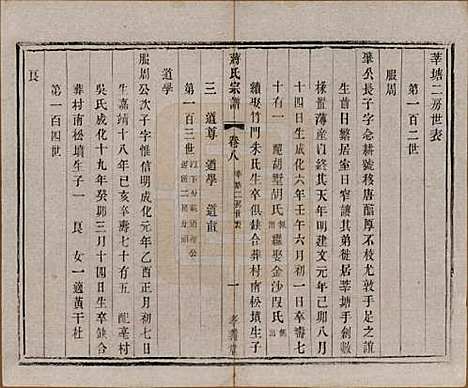 莘塘二房世表
第一百二世
服周
肇公長子字念耕徙移唐酷厚不枝尤尚
生首日繁居室日窄乃請其弟徙居莘塘手創數
椽置薄産以終其天年明建文元年己卯八月
十四日生成化六年壬午六月初一日卒壽七
十有一 配胡墅胡氏 繼娶金沙段氏
續娶竹門朱氏生卒俱缺合葬村南松墳生子
三 道尊 道學 道直
蔣氏宗譜
卷八
莘塘二房世表
一
孝義堂
第一百三世
道學
服周公次子字惟信明成化元年乙酉正月初七日
生嘉靖十八年己亥卒壽七十有五 配亳村
吳氏成化十九年癸卯三月十四日生卒缺合
葬村南松墳生子一 良 女一適黃干社
第一百四世
良